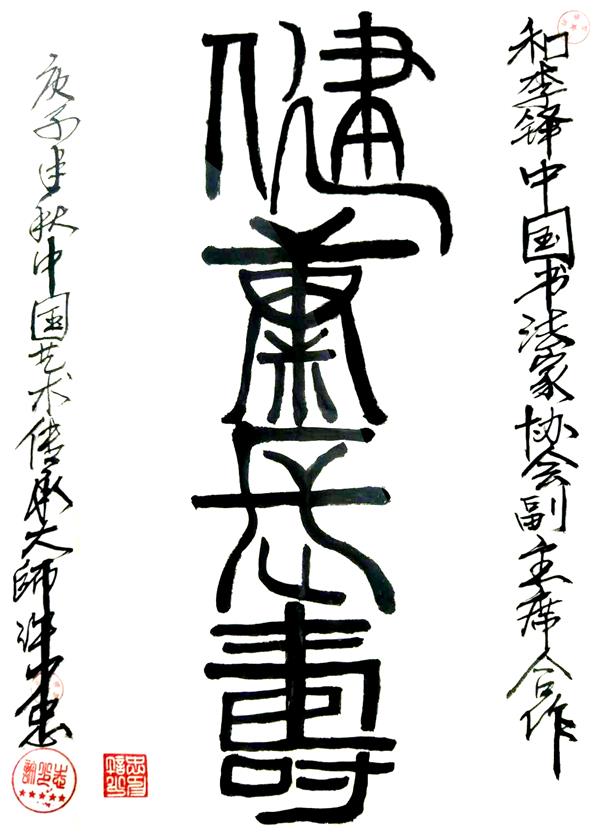 和李铎中国书法家协会副主席合作
健康長壽
庚子年秋中国艺术传承大師许忠